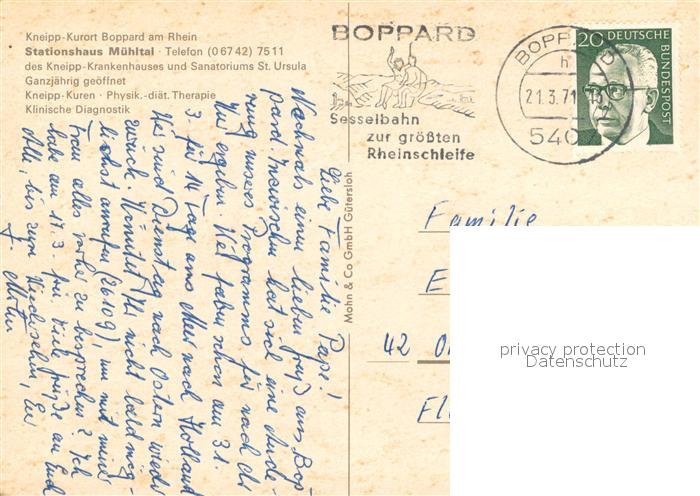 Kneipp-Kurort Boppard am Rhein
Stationshaus Mühltal · Telefon (0 67 42) 75 11
des Kneipp-Krankenhauses und Sanatoriums St. Ursula
Ganzjährig geöffnet
Kneipp-Kuren · Physik.-diät. Therapie
Klinische Diagnostik
BOPPARD
Sesselbahn
zur größten
Rheinschleife
BOPPARD
h
21.3.71
540
20 DEUTSCHE
BUNDESPOST
Liebe Familie Pape!
Nochmals einen lieben Gruß aus Bop-
pard. Inzwischen hat sich eine Ände-
rung unseres Programms für nach der
Kur ergeben. Wir fahren schon am 31.
3. für 14 Tage ans Meer nach Holland
u. sind Dienstag nach Ostern wieder
zurück. Könntet Ihr nicht bald mög-
lichst anrufen (26109), um mit meiner
Frau alles vorher zu besprechen? Ich
habe am 17.3. frei. Viele Grüße an Euch
Alle, bis zum Wiedersehen, Eu
Mohn & Co GmbH Gütersloh
Familie
E
42 O
privacy protection
Datenschutz